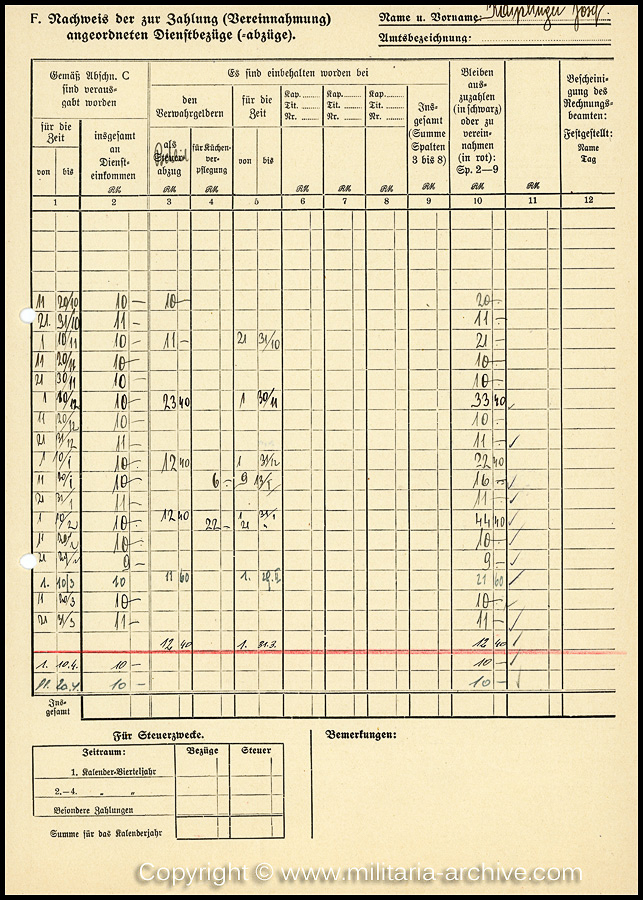 F. Nachweis der zur Zahlung (Vereinnahmung)
angeordneten Dienstbezüge (-abzüge).
Name u. Vorname: Josef
Amtsbezeichnung:
Gemäß Abschn. C
sind veraus-
gabt worden
für die
Zeit
von bis
insgesamt
an
Dienst-
einkommen
RM
Es sind einbehalten worden bei
den
Verwahrgeldern
als
Steuer-
abzug
RM
für Küchen-
ver-
pflegung
RM
für die
Zeit
von bis
Kap. ........
Tit. ........
Nr. ........
RM
Kap. ........
Tit. ........
Nr. ........
RM
Kap. ........
Tit. ........
Nr. ........
RM
Ins-
gesamt
(Summe
Spalten
3 bis 8)
RM
Bleiben
aus-
zuzahlen
(in schwarz)
oder zu
verein-
nahmen
(in rot):
Sp. 2—9
RM
RM
Bescheini-
gung des
Rechnungs-
beamten:
Festgestellt:
Name
Tag
1 2 3 4 5 6 7 8 9 10 11 12
11 20/10 10 – 10 – 20 –
21. 31/10 11 – 11 –
1 10/11 10 – 11 – 21 31/10 21 –
11 20/11 10 – 10 –
21 30/11 10 – 10 –
1 10/12 10 – 23 40 1 30/11 33 40 ✓
11 20/12 10 – 10 –
21 31/12 11 – 11 – ✓
1 10/1 10 – 12 40 1 31/12 22 40
11 20/1 10 – 6 – 9 13/1 16 – ✓
21 31/1 11 – 11 – ✓
1 10/2 10 – 12 40 22 – 1 31/1 21 " 44 40 ✓
11 20/2 10 – 10 – ✓
21 9 – 9 – ✓
1. 10/3 10 11 60 1. 29.II. 21 60 ✓
11 20/3 10 – 10 – ✓
21 31/3 11 – 11 – ✓
12 40 1. 31.3. 12 40 ✓
1. 10.4. 10 – 10 – ✓
11. 20.4. 10 – 10 – ✓
Ins-
gesamt
Für Steuerzwecke.
Zeitraum: Bezüge Steuer
1. Kalender-Vierteljahr
2.—4. " "
Besondere Zahlungen
Summe für das Kalenderjahr
Bemerkungen:
Copyright © www.militaria-archive.com